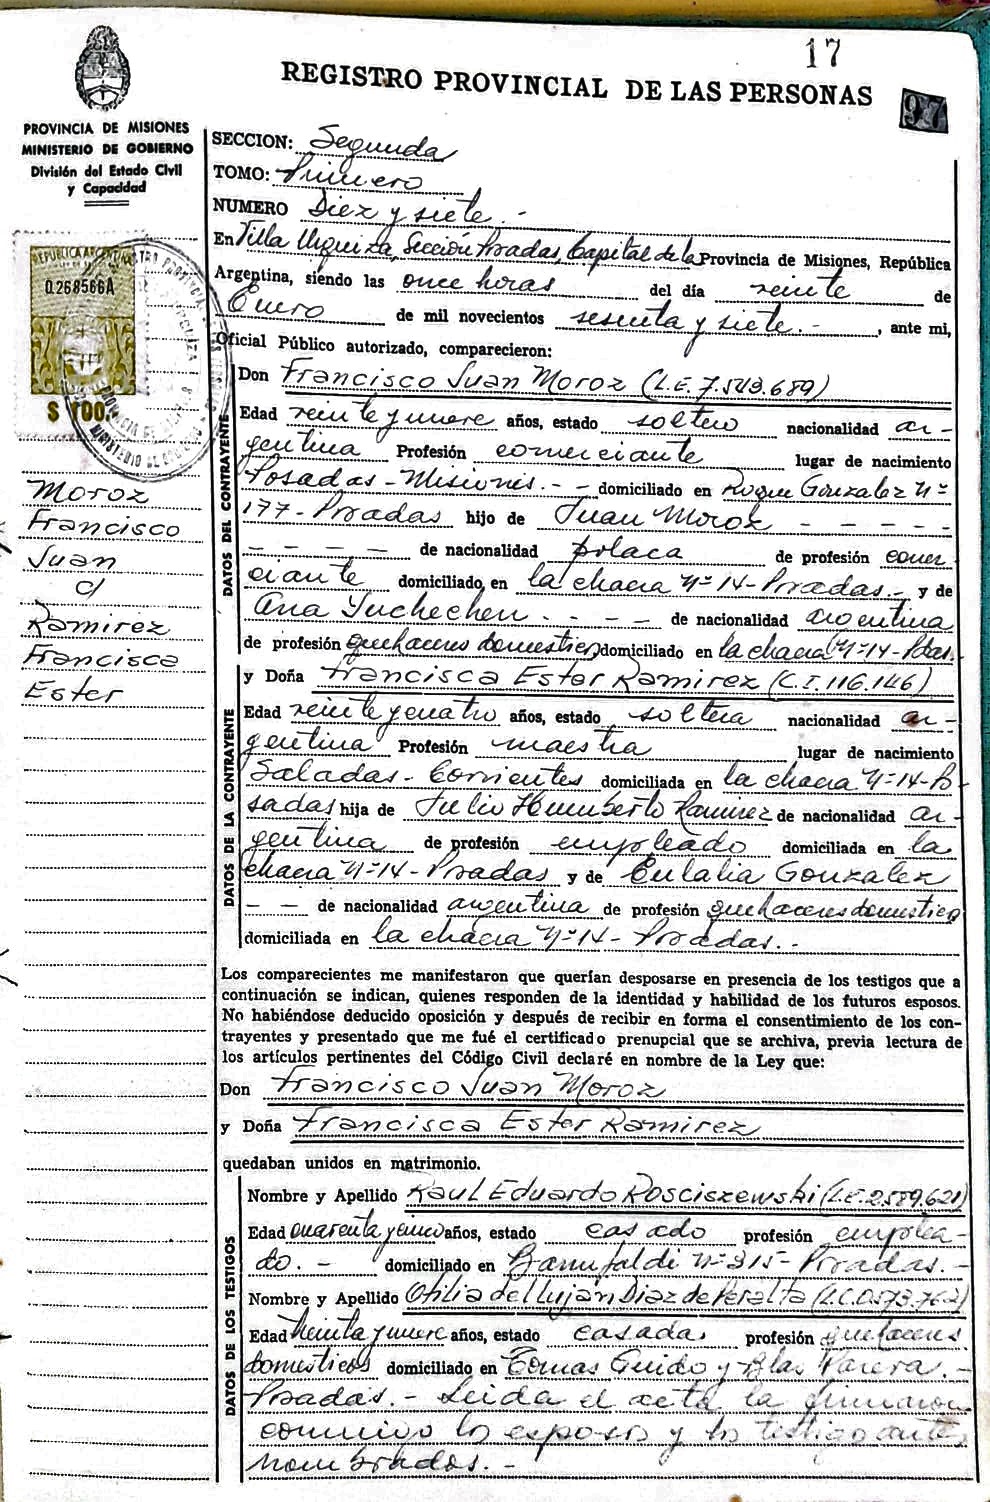 17
REGISTRO PROVINCIAL DE LAS PERSONAS
97
PROVINCIA DE MISIONES
MINISTERIO DE GOBIERNO
División del Estado Civil
y Capacidad
REPUBLICA ARGENTINA
0.268566A
$ 100.
Moroz
Francisco
Juan
c/
Ramirez
Francisca
Ester
SECCION: Segunda
TOMO: Primero
NUMERO Diez y siete.-
En Villa Urquiza, Sección Posadas, Capital de la Provincia de Misiones, República
Argentina, siendo las once horas del día veinte de
Enero de mil novecientos sesenta y siete.- , ante mi,
Oficial Público autorizado, comparecieron:
DATOS DEL CONTRAYENTE
Don Francisco Juan Moroz (L.E. 7.543.689)
Edad veinte y nueve años, estado soltero nacionalidad ar-
gentina Profesión comerciante lugar de nacimiento
Posadas - Misiones. - - domiciliado en Roque Gonzalez Nº
177 - Posadas hijo de Juan Moroz - - - - -
- - - - - de nacionalidad polaca de profesión comer-
ciante domiciliado en la chacra Nº 14 - Posadas.- y de
Ana - - - - de nacionalidad argentina
de profesión quehaceres domesticos domiciliado en la chacra Nº 14 - Pdas.
DATOS DE LA CONTRAYENTE
y Doña Francisca Ester Ramirez (C.I. 116.146)
Edad veinte y cuatro años, estado soltera nacionalidad ar-
gentina Profesión maestra lugar de nacimiento
Saladas - Corrientes domiciliada en la chacra Nº 14 - Po-
sadas hija de Julio Humberto Ramirez de nacionalidad ar-
gentina de profesión empleado domiciliada en la
chacra Nº 14 - Posadas y de Eulalia Gonzalez
- - de nacionalidad argentina de profesión quehaceres domesticos
domiciliada en la chacra Nº 14 - Posadas.-
Los comparecientes me manifestaron que querían desposarse en presencia de los testigos que a
continuación se indican, quienes responden de la identidad y habilidad de los futuros esposos.
No habiéndose deducido oposición y después de recibir en forma el consentimiento de los con-
trayentes y presentado que me fué el certificado prenupcial que se archiva, previa lectura de
los artículos pertinentes del Código Civil declaré en nombre de la Ley que:
Don Francisco Juan Moroz
y Doña Francisca Ester Ramirez
quedaban unidos en matrimonio.
DATOS DE LOS TESTIGOS
Nombre y Apellido Raul Eduardo Rosciszewski (L.E. 2.589.621)
Edad cuarenta y cinco años, estado casado profesión emplea-
do. - domiciliado en Nº 315 - Posadas.-
Nombre y Apellido Otilia del Lujan Diaz de Peralta (L.C. 0.573.762)
Edad treinta y nueve años, estado casada profesión quehaceres
domesticos domiciliado en Tomas Guido y Blas Parera.-
Posadas.- Leida el acta la firmaron
conmigo los esposos y los testigos antes
nombrados.-